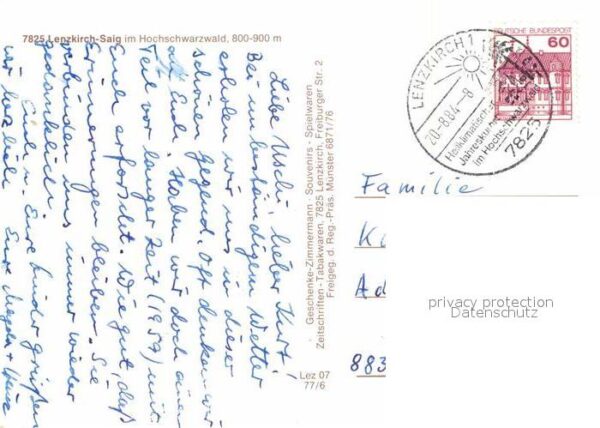 7825 Lenzkirch-Saig im Hochschwarzwald, 800-900 m
Liebe Uschi, lieber Kurt!
Bei beständigem Wetter
erholen wir uns in dieser
schönen Gegend. Oft denken wir
an Euch. Haben wir doch einen
Teil vor langer Zeit (1957) mit
Euch erforscht. Wie gut, daß
Erinnerungen bleiben. Sie
verbinden uns immer wieder
gedanklich.
Euch u. Eure Kinder grüßen
wir herzlich Eure Magda + Hans
Geschenke-Zimmermann · Souvenirs · Spielwaren
Zeitschriften · Tabakwaren, 7825 Lenzkirch, Freiburger Str. 2
Freigeg. d. Reg.-Präs. Münster 6871/76
Lez 07
77/6
DEUTSCHE BUNDESPOST
60
LENZKIRCH 1
20.-8.84-8
Heilklimatischer
Jahreskurort
im Hochschwarzwald
7825
Familie
K
Ad
883
privacy protection
Datenschutz